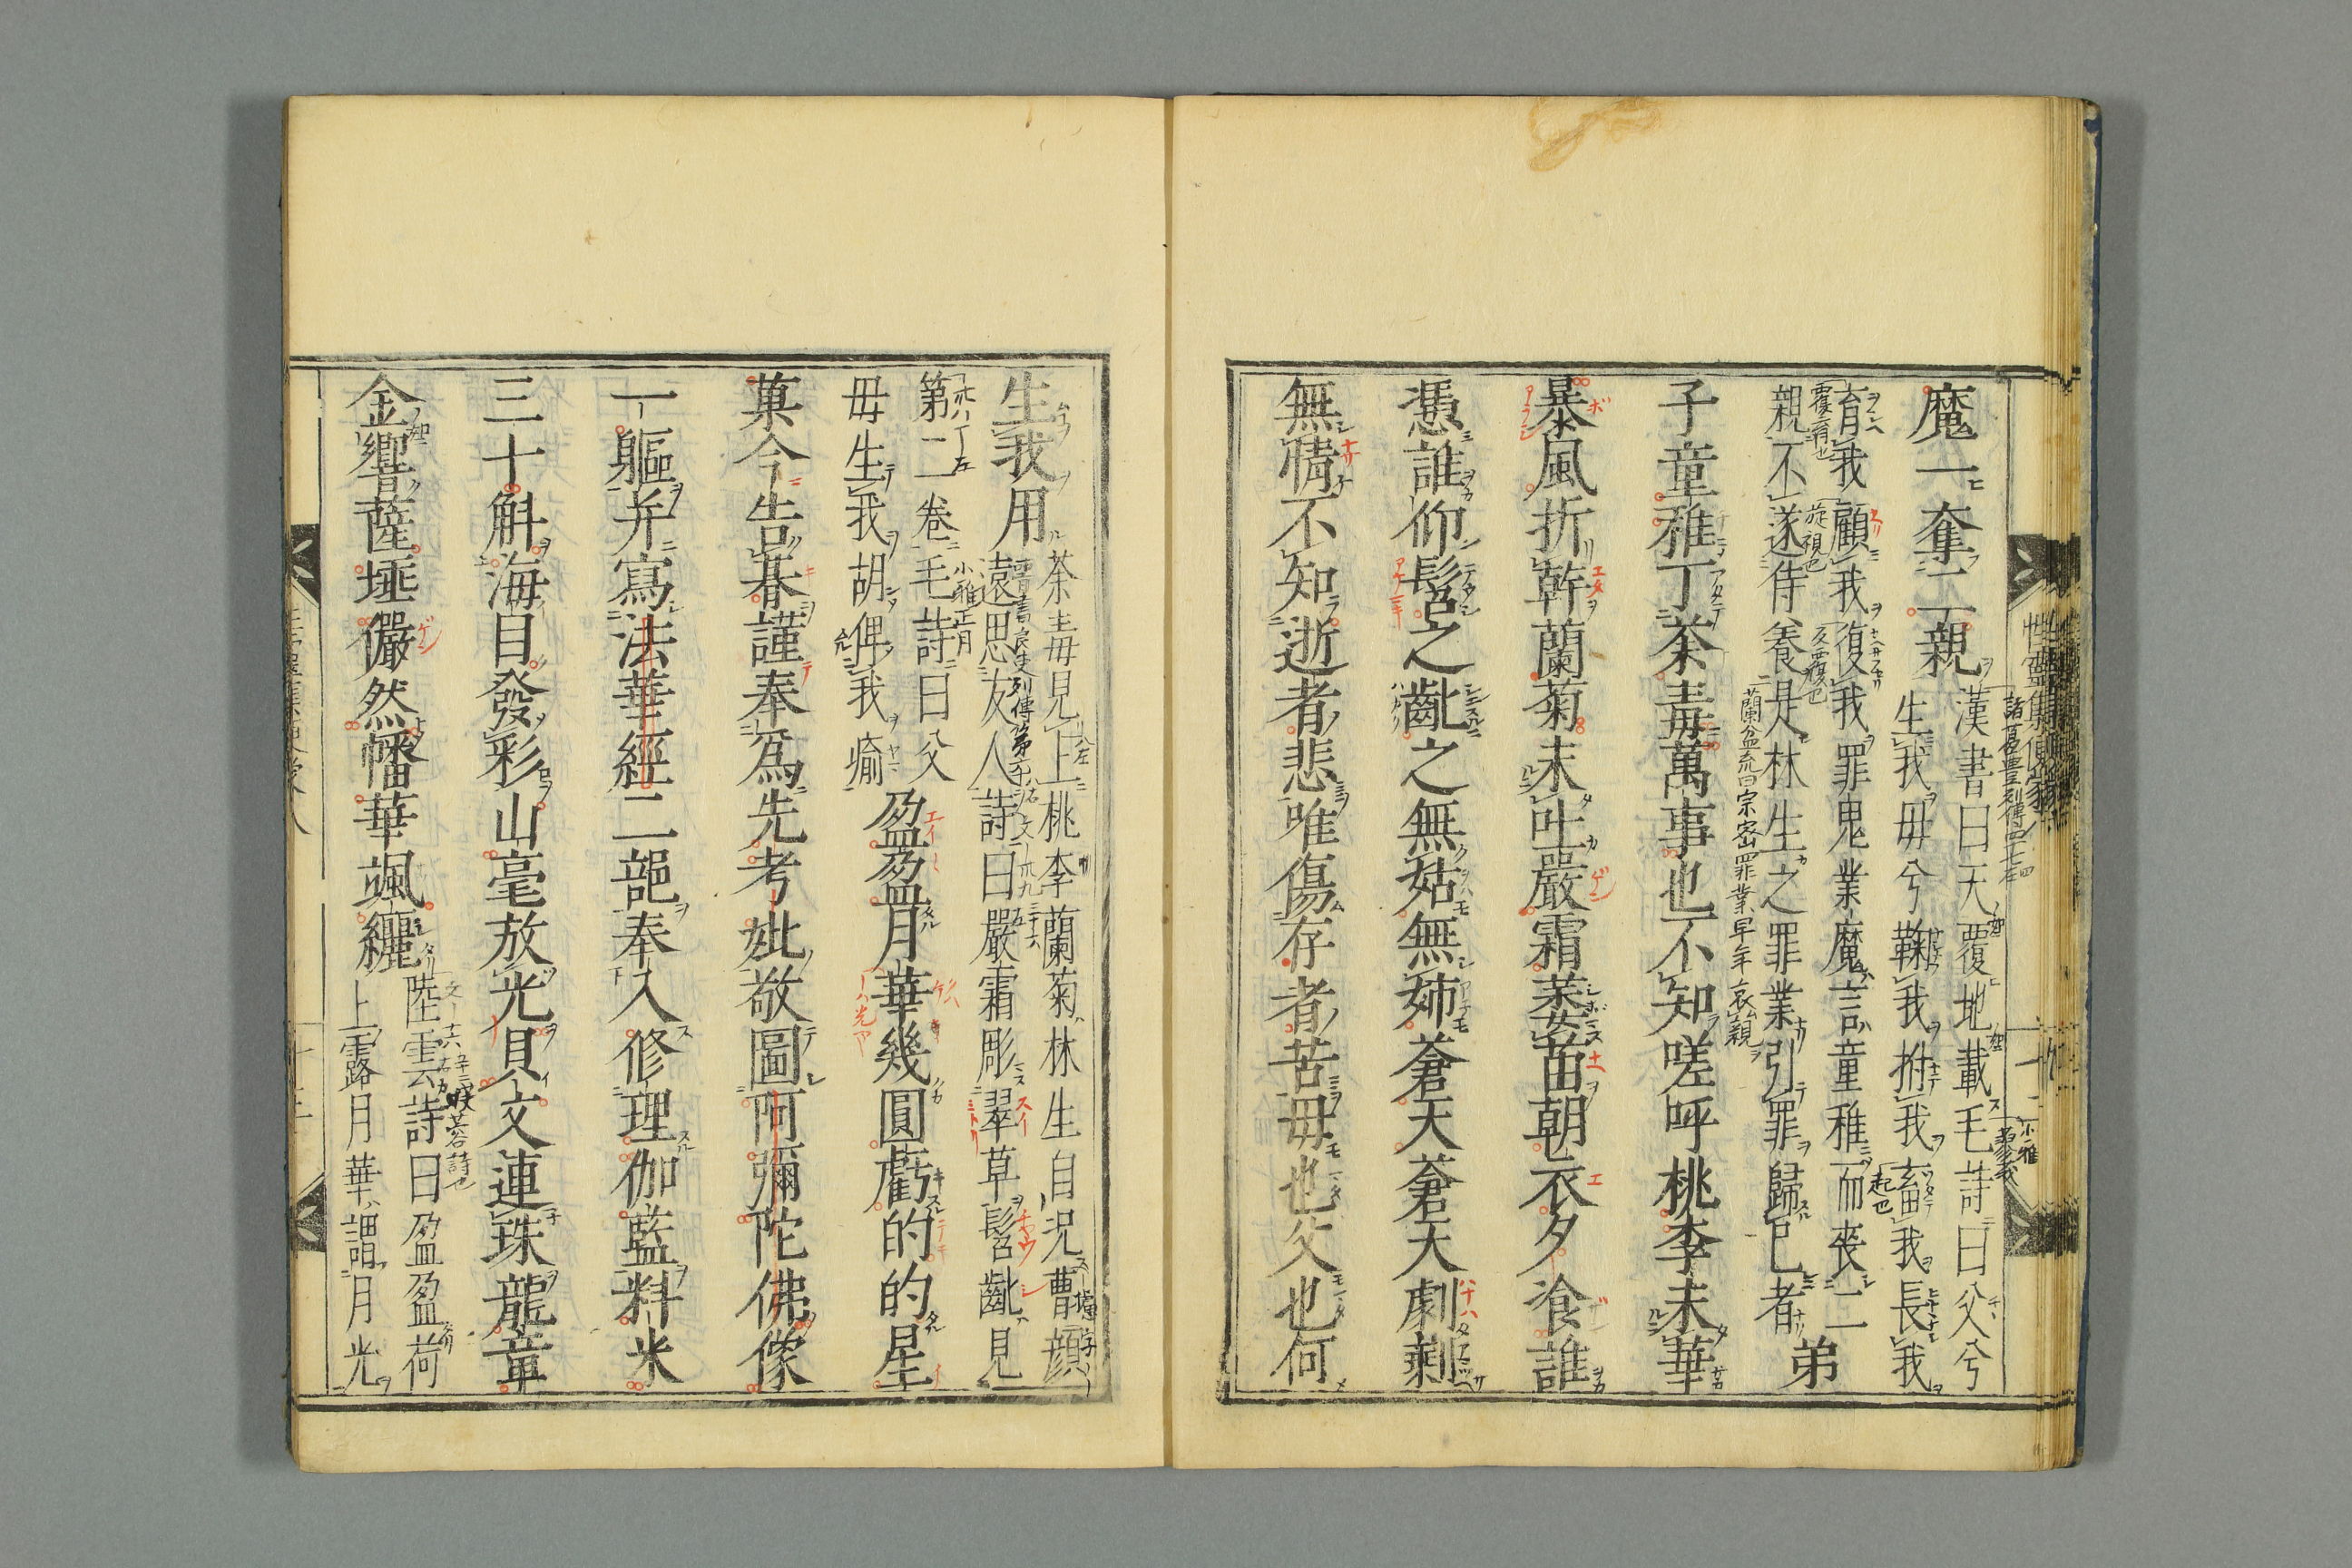 魔一奪二親
漢書曰天覆地載毛詩曰父兮
生我毋兮鞠我拊我畜我長我
育我顧我復我罪鬼業魔言童稚而喪二
親不遂侍養是林生之罪業引罪歸己者
弟
子童稚丁荼毒萬事也不知嗟呼桃李未華
暴風折幹蘭菊未吐嚴霜萎苗朝衣夕飡誰
憑誰仰髫之齔之無姑無姉蒼天蒼天劇剝
無情不知逝者悲唯傷存者苦毋也父也何
生我用
荼毒毋見上桃李蘭菊林生自況曹顏
遠思友人詩曰嚴霜彫翠草髫齔見
第二卷毛詩曰父
毋生我胡俾我瘉
盈盈月華幾圓虧的的星
菓今告朞謹奉爲先考妣敬圖阿彌陀佛像
一軀并寫法華經二部奉入修理伽藍料米
三十斛海目發彩山毫放光貝文連珠龍章
金響薩埵儼然幡華颯纚
陸雲詩曰盈盈荷
上露月華謂月光